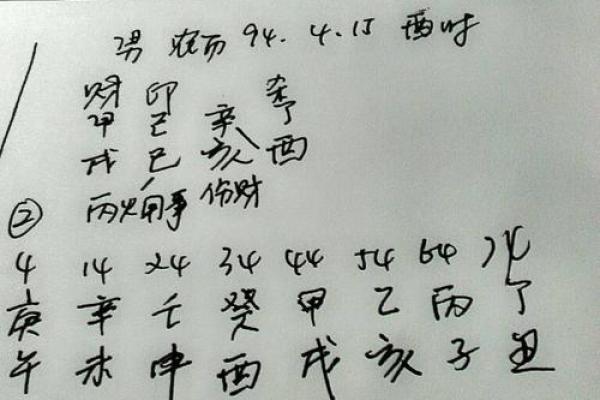 男 农历 94. 4. 15 酉时
财 印 杀
甲 己 辛 丁
戌 巳 亥 酉
丙火用事 伤财
②
4 14 24 34 44 54 64 74
庚 辛 壬 癸 甲 乙 丙 丁
午 未 申 酉 戌 亥 子 丑